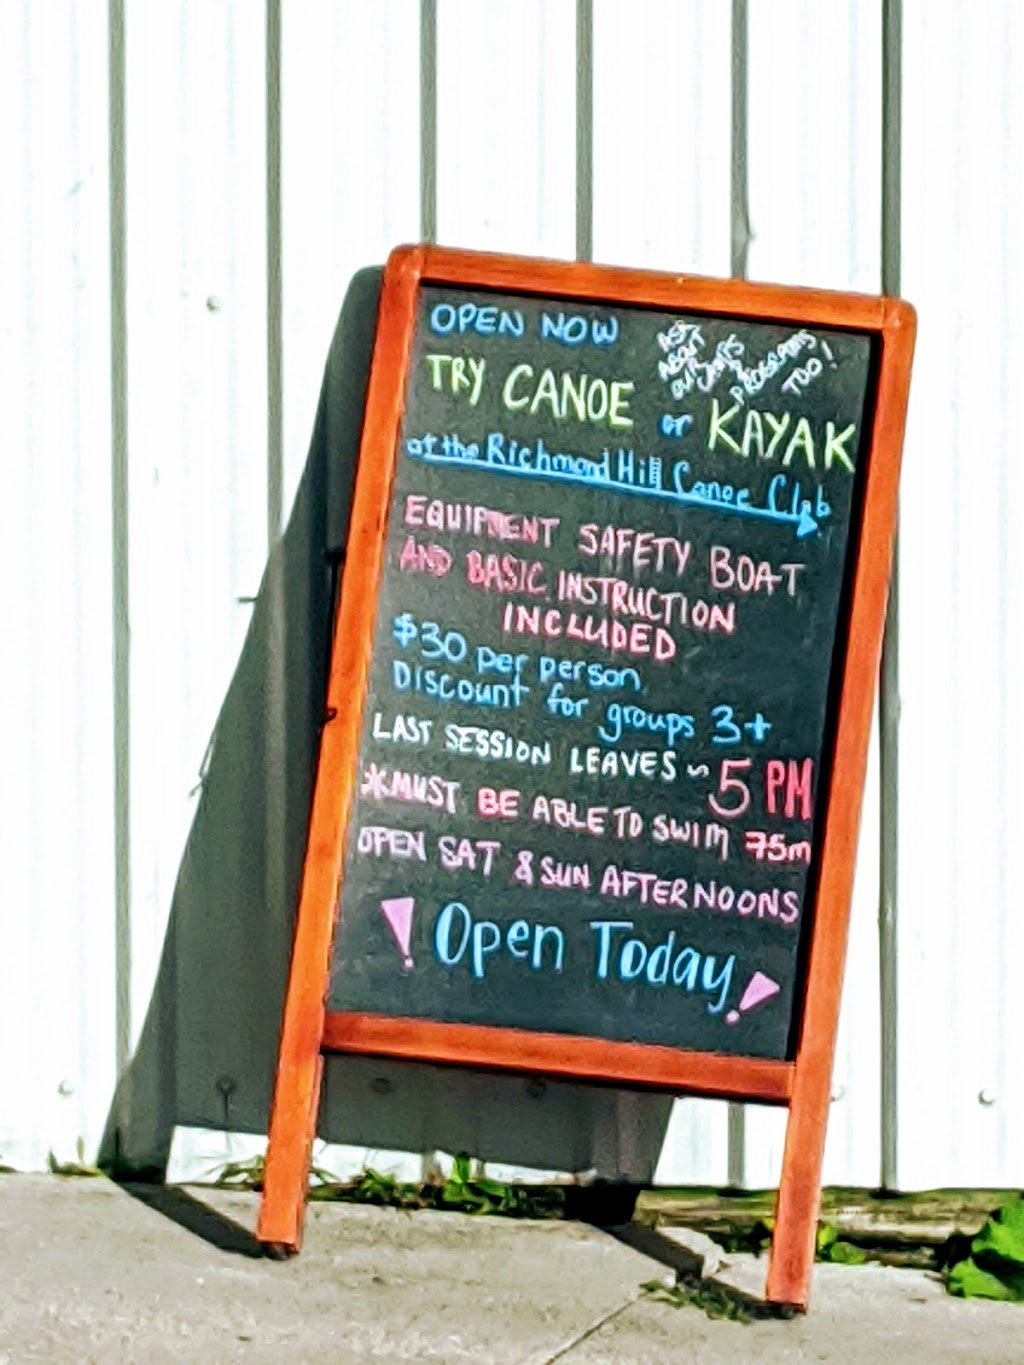 OPEN NOW
ASK
ABOUT
OUR
PROGRAMS
TOO!
TRY CANOE or KAYAK
at the Richmond Hill Canoe Club
EQUIPMENT SAFETY BOAT
AND BASIC INSTRUCTION
INCLUDED
$30 per person
Discount for groups 3+
LAST SESSION LEAVES ~ 5 PM
*MUST BE ABLE TO SWIM 75m
OPEN SAT & SUN AFTERNOONS
! Open Today !